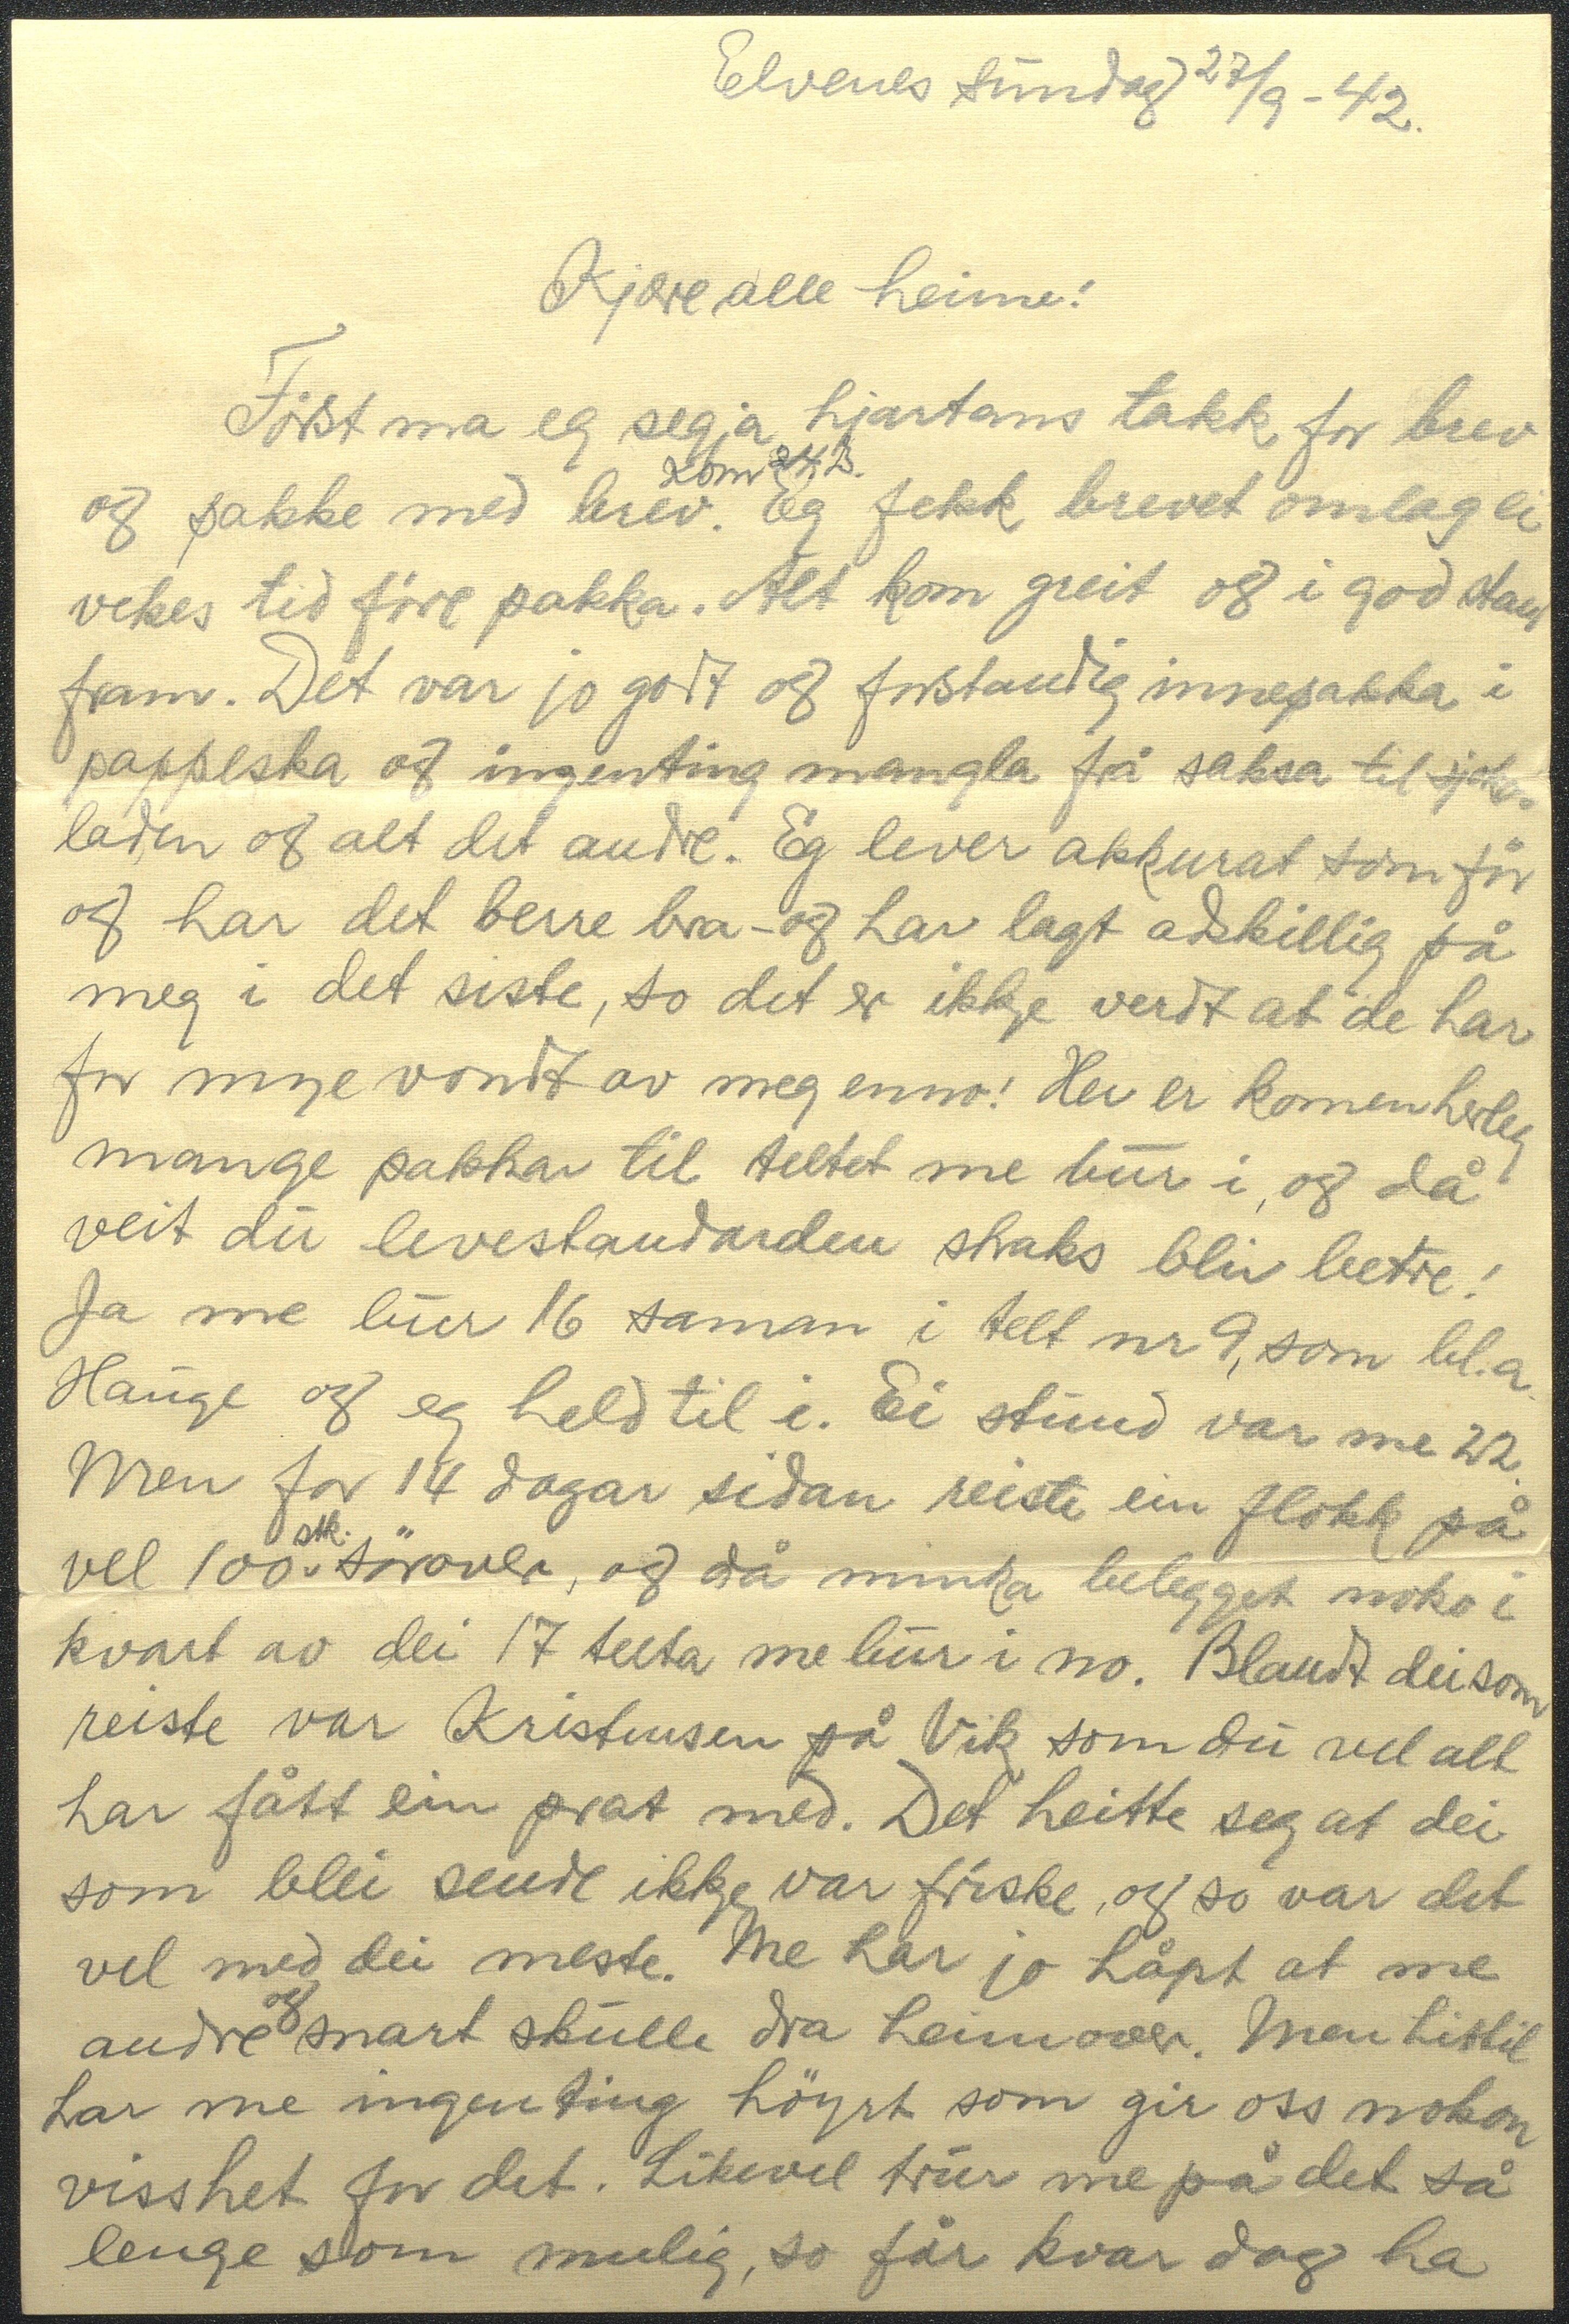 Elvenes sundag 27/9-42.
Kjære alle heime!
Först ma eg segja hjartans takk for brev
kom 24/8.
og pakke med brev. Eg fekk brevet omlag ei
vekes tid före pakka. Alt kom greit og i god stand
fram. Det var jo godt og forstandig innepakka i
pappeska og ingenting mangla frå saksa til sjoko-
laden og alt det andre. Eg lever akkurat som för
og har det berre bra - og har lagt adskillig på
meg i det siste, so det er ikkje verdt at de har
for mye vondt av meg enno! Her er komen herleg
mange pakkar til teltet me bur i, og då
veit du levestandarden straks bliv betre!
Ja me bur 16 saman i telt nr 9, som bl.a.
Hauge og eg held til i. Ei stund var me 22.
Men for 14 dagar sidan reiste ein flokk på
vel 100 stk. sörover, og då minka belegget noko i
kvart av dei 17 telta me bur i no. Blandt dei som
reiste var Kristensen på Vik som du vel alt
har fått ein prat med. Det heitte seg at dei
som blei sende ikkje var friske, og so var det
vel med dei meste. Me har jo håpt at me
andre og snart skulle dra heimover. Men hittil
har me ingenting höyrt som gir oss nokon
visshet for det. Likevel trur me på det så
lenge som mulig, so får kvar dag ha